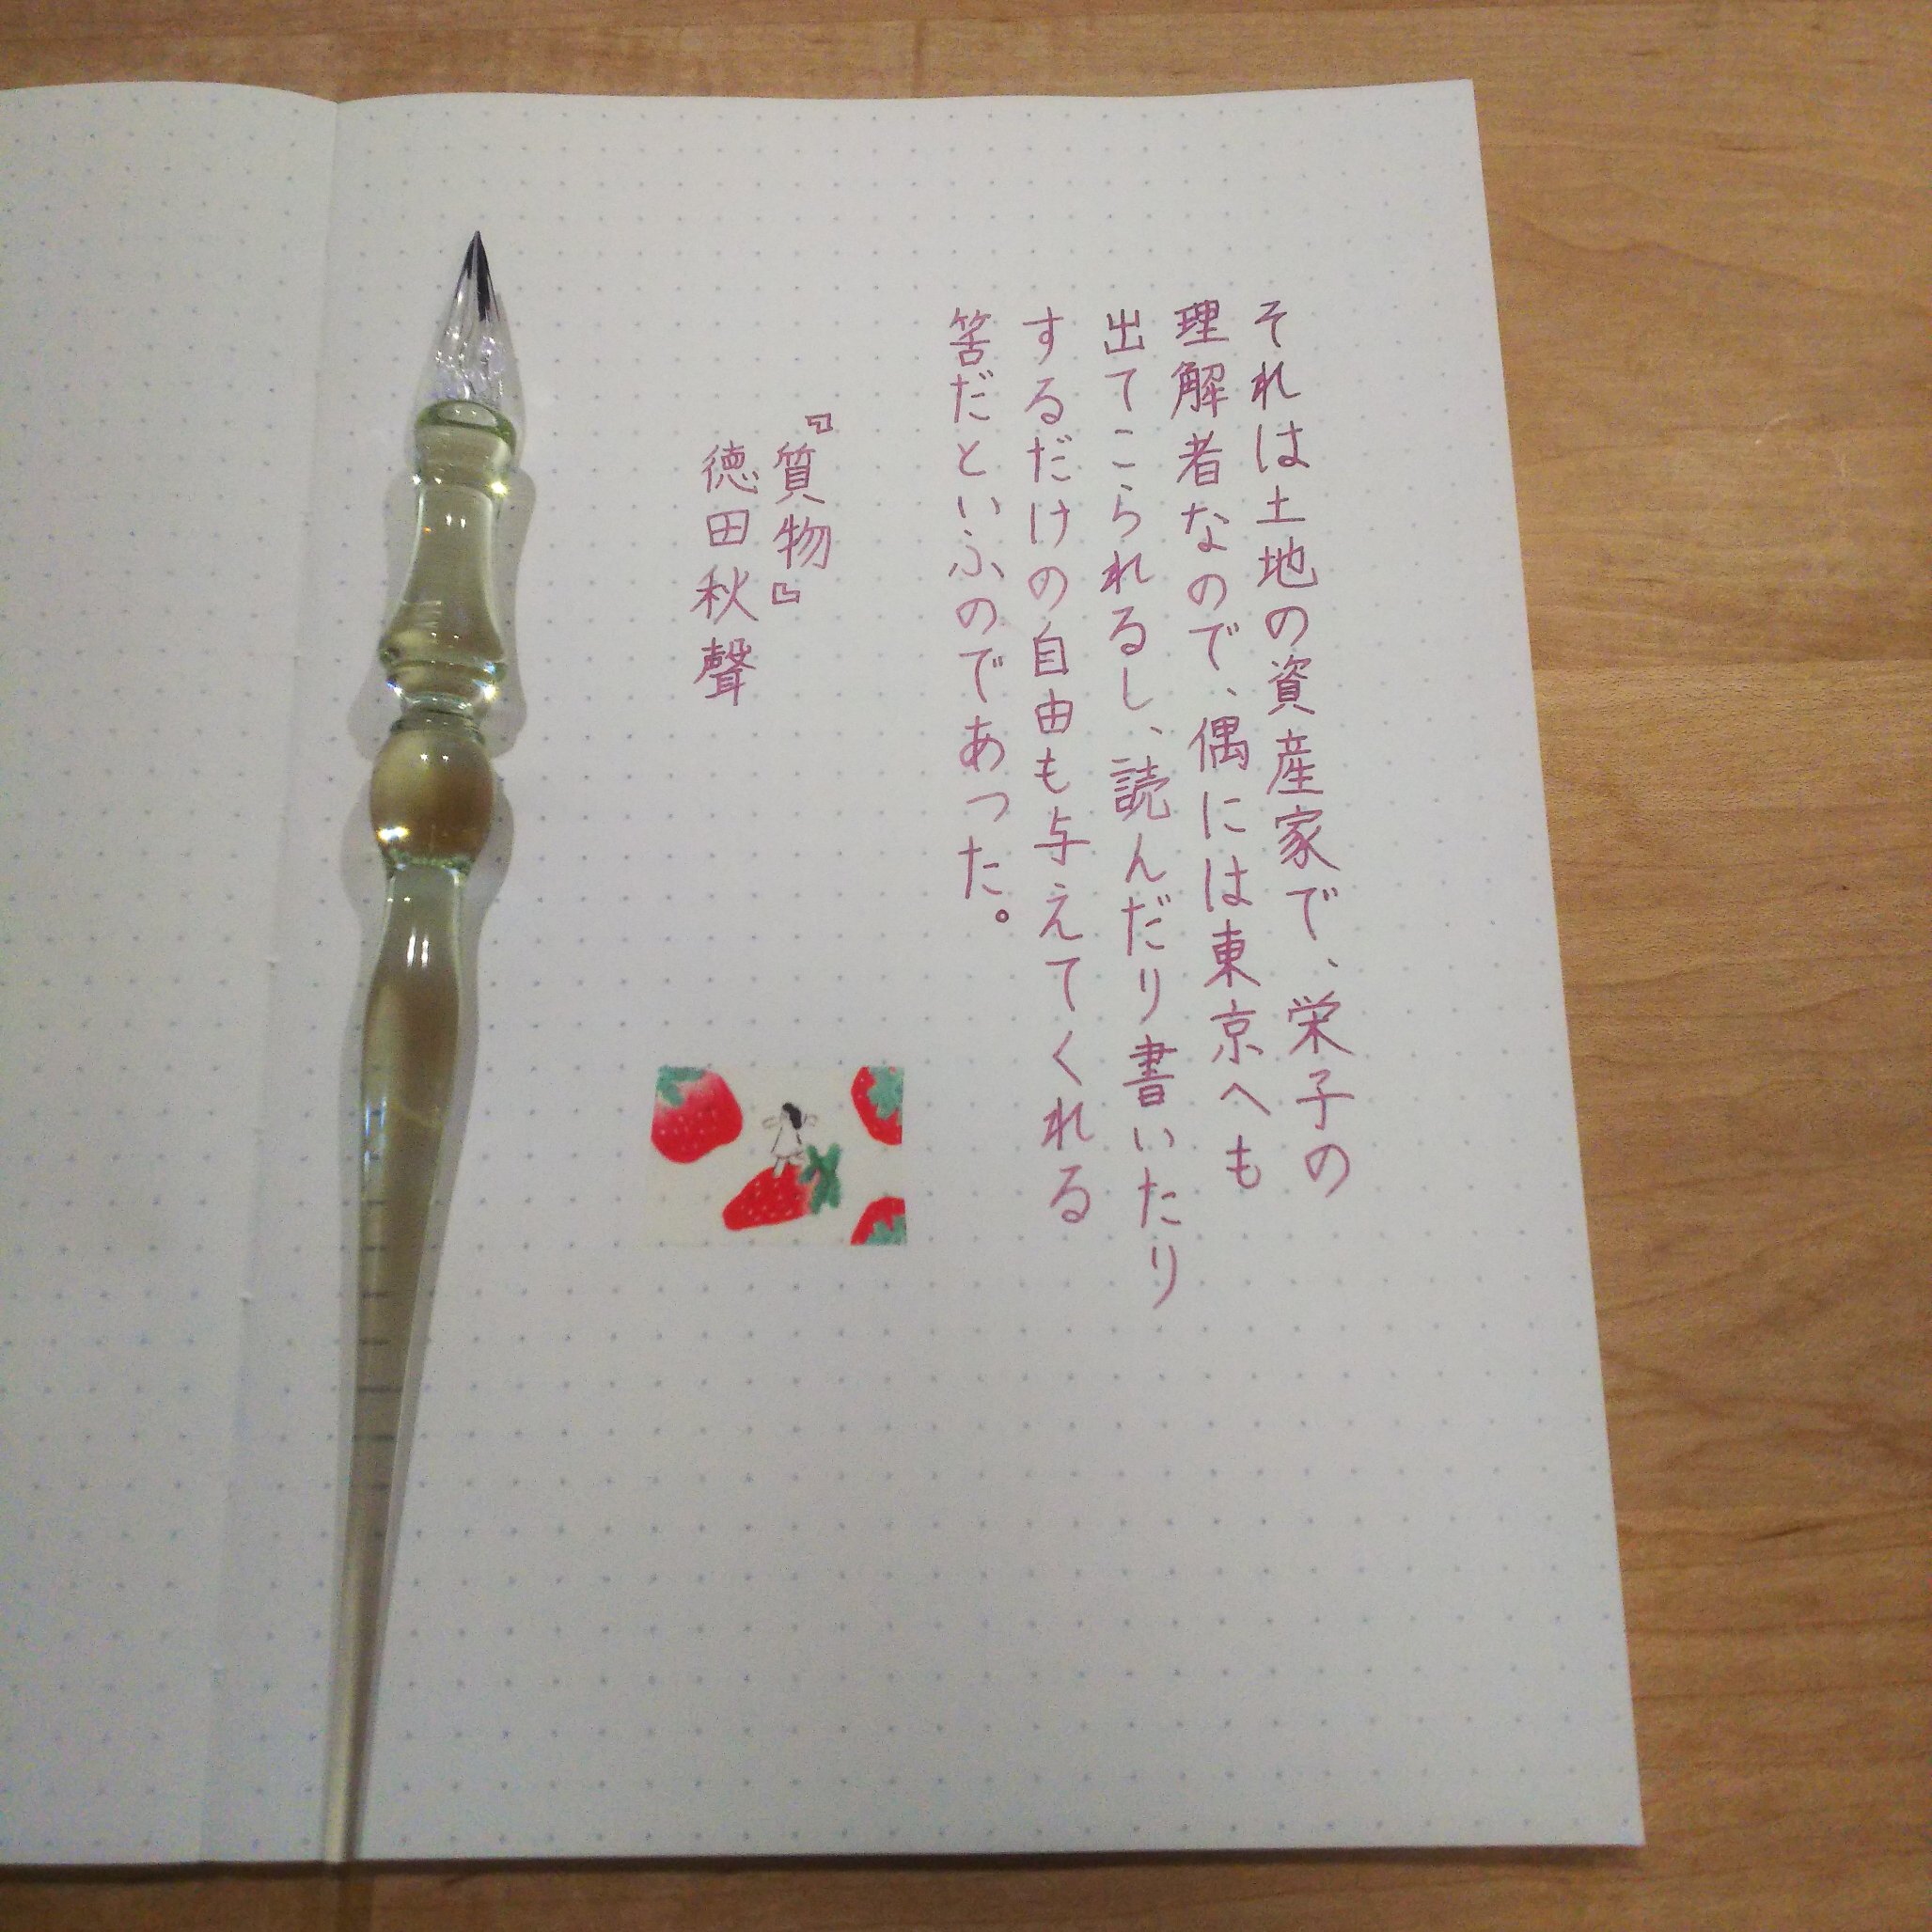 それは土地の資産家で、栄子の
理解者なので、偶には東京へも
出てこられるし、読んだり書いたり
するだけの自由も与えてくれる
筈だといふのであった。
『質物』
徳田秋聲